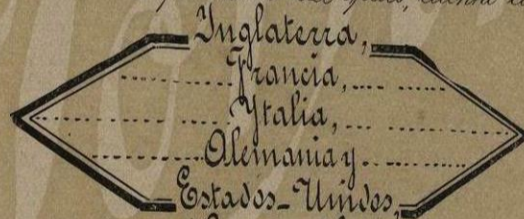 Inglaterra,
Francia,
Ytalia,
Alemania y
Estados-Unidos,